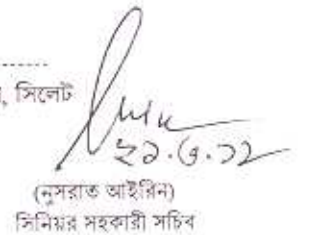 , সিলেট
২১.৫.১২
(নুসরাত আইরিন)
সিনিয়র সহকারী সচিব